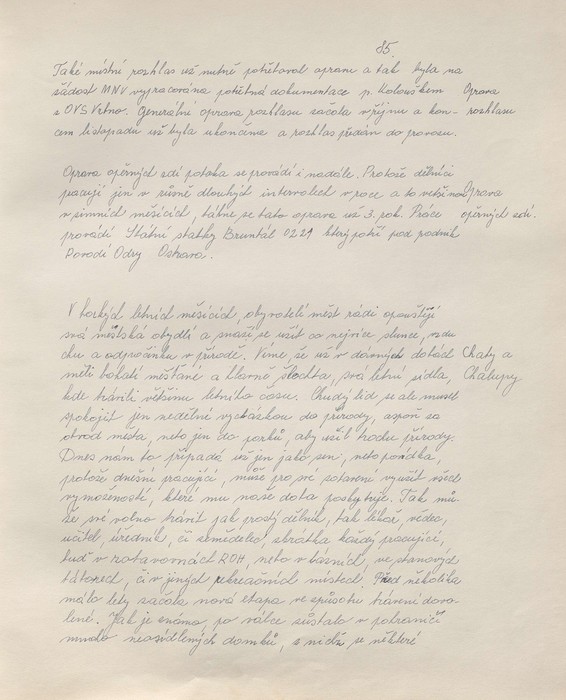 85.
Také místní rozhlas už nutně potřeboval opravu a tak byla na
žádost MNV vypracována potřebná dokumentace p. Kolouškem Oprava
z OVS Vrbno. Generální oprava rozhlasu začala v říjnu a kon- rozhlasu
cem listopadu už byla ukončena a rozhlas předán do provozu.
Oprava opěrných zdí potoka se provádí i nadále. Protože dělníci
pracují jen v různě dlouhých intervalech v roce a to většinou Oprava
v zimních měsících, táhne se tato oprava už 3. rok. Práce opěrných zdí.
provádí Státní statky Bruntál 0221 který patří pod podnik
Povodí Odry Ostrava.
V horkých letních měsících, obyvatelé měst rádi opouštějí
svá městská obydlí a snaží se užít co nejvíce slunce, vzdu
chu a odpočinku v přírodě. Víme, že už v dávných dobách Chaty a
měli bohatí měšťané a hlavně šlechta, svá letní sídla, Chalupy
kde trávili většinu letního času. Chudý lid se ale musel
spokojit jen nedělní vycházkou do přírody, aspoň za
obvod města, nebo jen do parků, aby užil trochu přírody.
Dnes nám to připadá už jen jako sen, nebo pohádka,
protože dnešní pracující, může pro své zotavení využít všech
vymožeností, které mu naše doba poskytuje. Tak mů-
že své volno trávit jak prostý dělník, tak lékař, vědec,
učitel, úředník, či zemědělec, zkrátka každý pracující,
buď v zotavovnách ROH, nebo v lázních, ve stanových
táborech, či v jiných rekreačních místech. Před několika
málo lety začala nová etapa ve způsobu trávení dovo-
lené. Jak je známo, po válce zůstalo v pohraničí
mnoho neosídlených domků, z nichž se některé